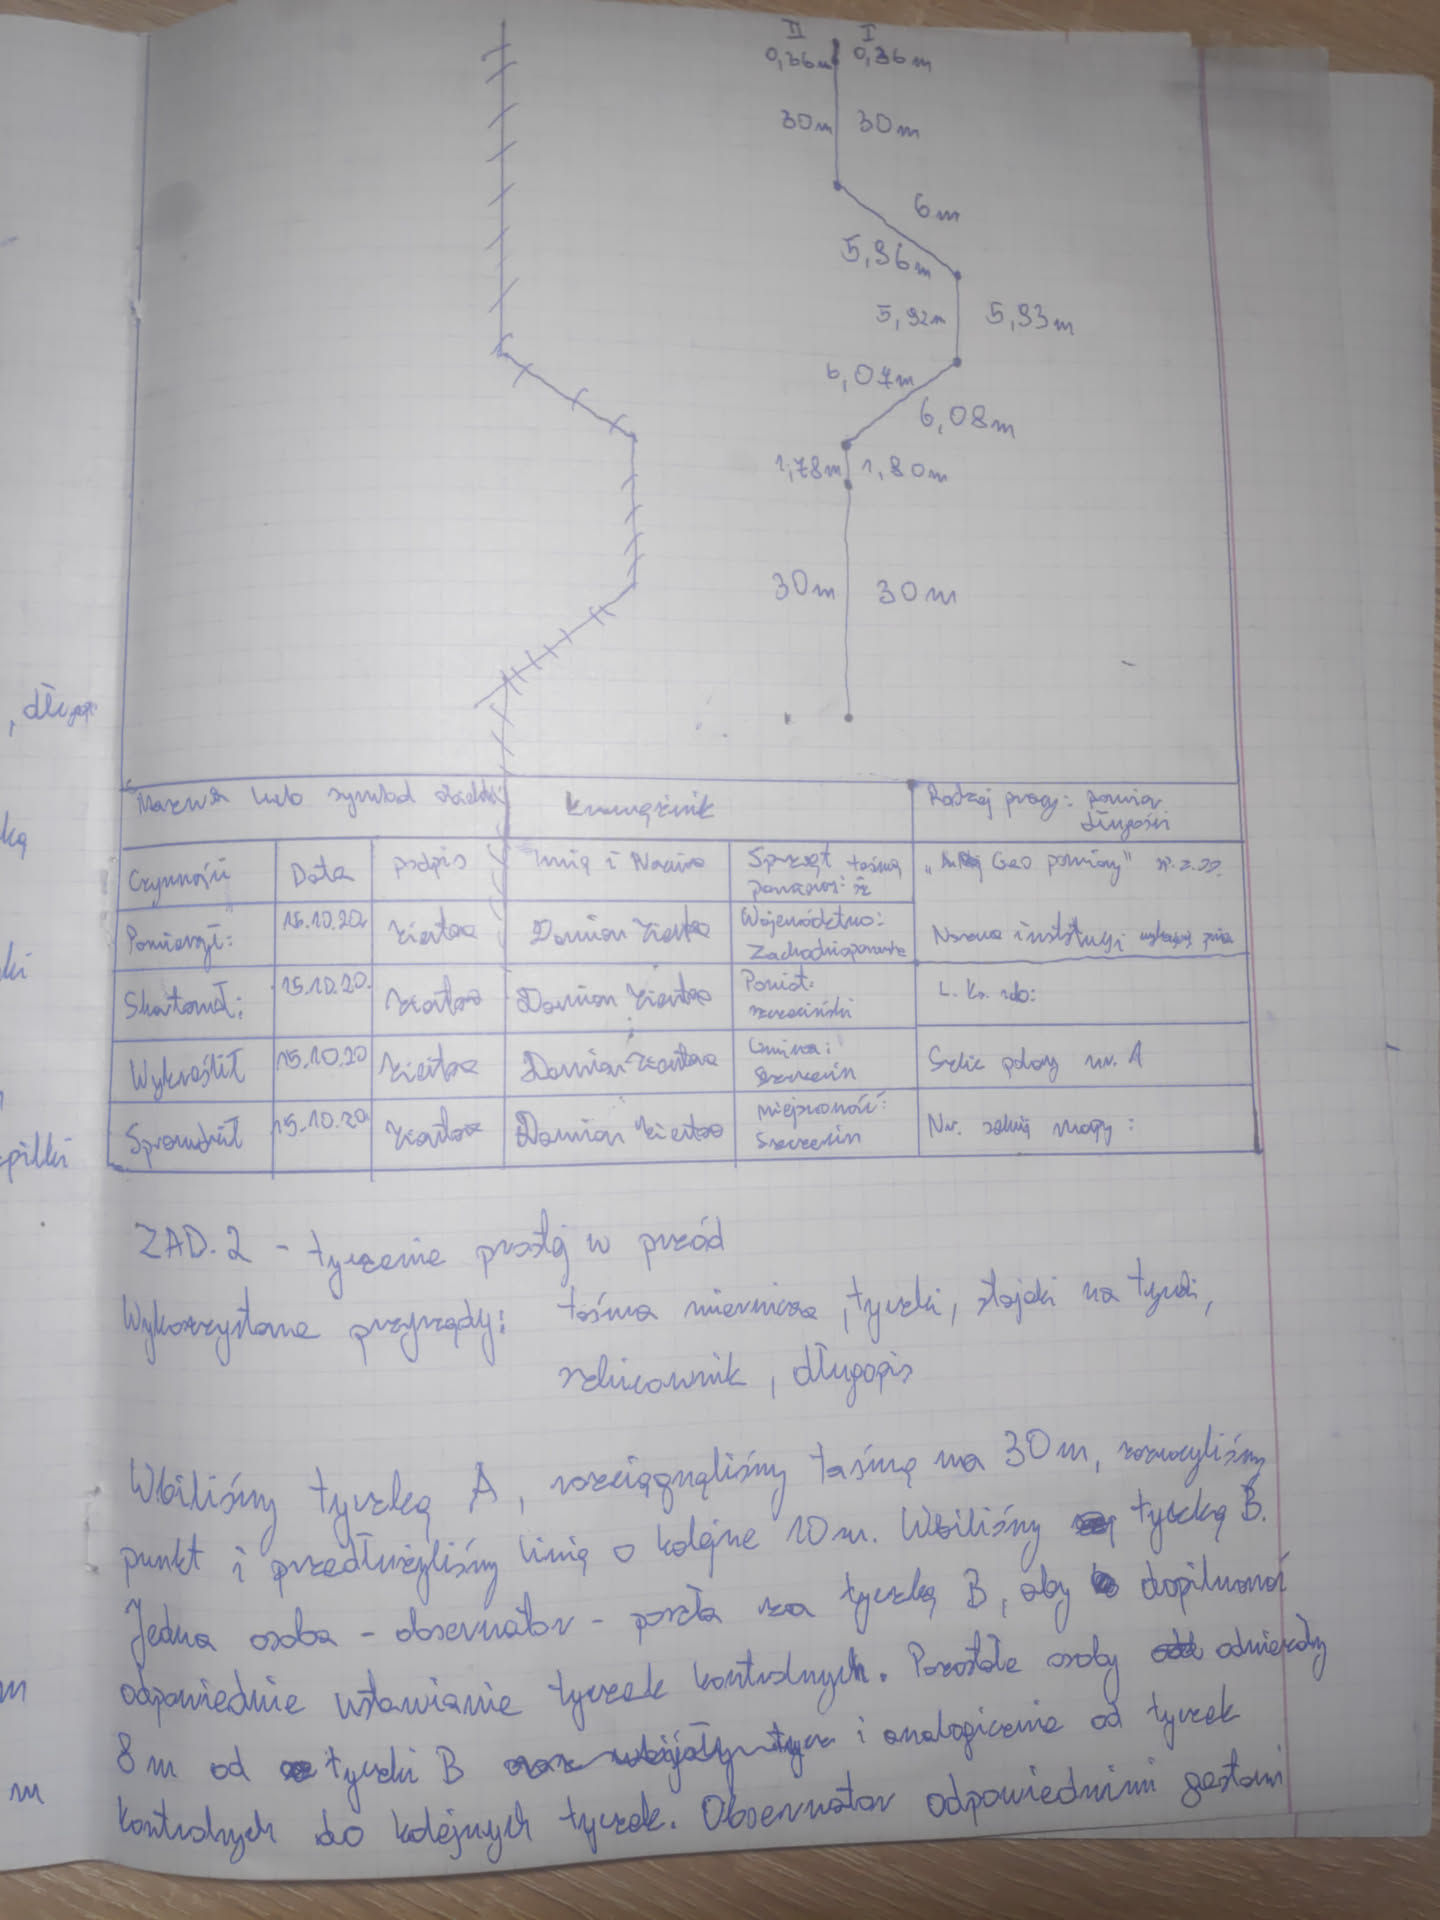 II I
0,36m 0,36m
30m 30m
6m
5,96m
5,92m 5,93m
6,07m
6,08m
1,78m 1,80m
30m 30m
, długopi
ką
ki
pilki
m
m
Nazwa lub symbol obiektu krawężnik Rodzaj pracy: pomiar
długości
Czynność Data podpis Imię i Nazwisko Sprzęt taśma
pomiarowy: "Geo pomiary"
Pomierzył: 15.10.20 Damian Województwo:
Zachodniopomorskie Nazwa
Skartował: 15.10.20. Damian Powiat:
szczeciński L. Ks. rob:
Wykreślił 15.10.20 Damian Gmina:
Szczecin Szkic polowy nr. A
Sprawdził 15.10.20 Damian miejscowość:
Szczecin Nr. sekcji mapy:
ZAD. 2 - tyczenie prostej w przód
Wykorzystane przyrządy: taśma miernicza, tyczki, stojaki na tyczki,
szkicownik, długopis
Wbiliśmy tyczkę A, rozciągnęliśmy taśmę na 30m,
punkt i przedłużyliśmy linię o kolejne 10m. Wbiliśmy tyczkę B.
Jedna osoba - obserwator - poszła za tyczkę B, aby dopilnować
odpowiednie ustawianie tyczek kontrolnych. Pozostałe osoby odmierzały
8m od tyczki B i analogicznie od tyczek
kontrolnych do kolejnych tyczek. Obserwator odpowiednimi gestami